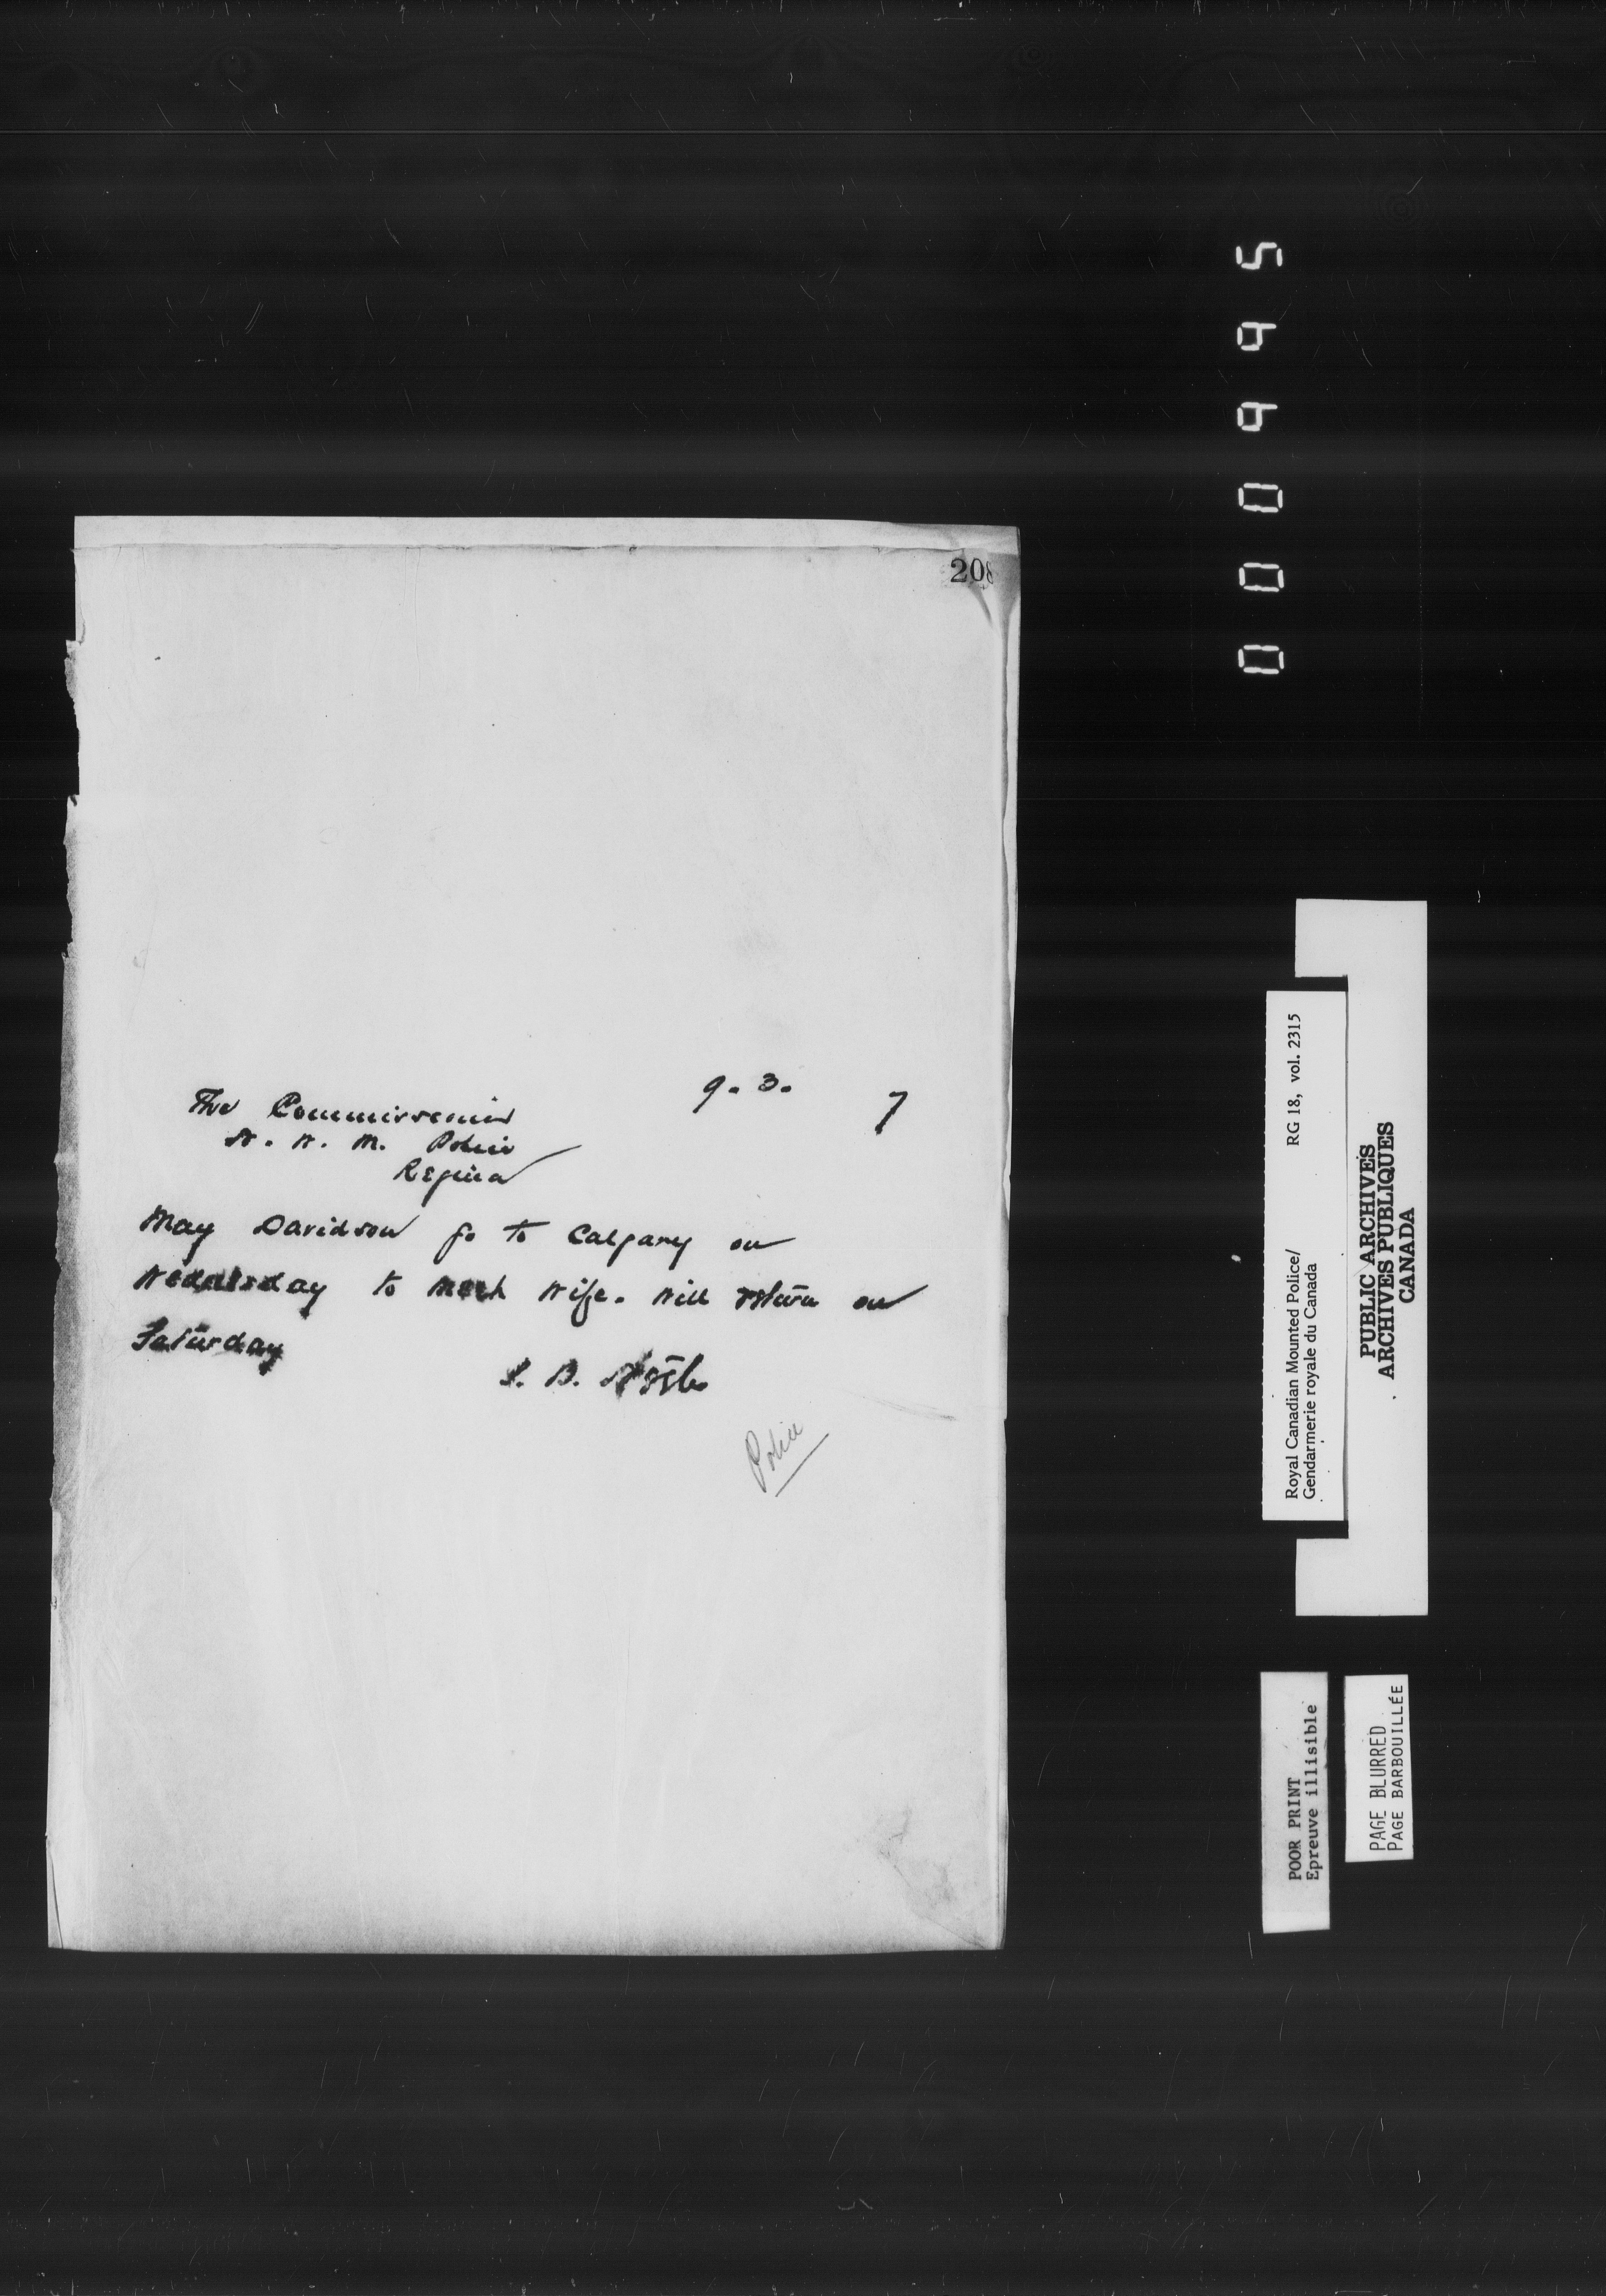 208
9. 3. 7
The Commissioner
N. W. M. Police
Regina
May Davidson go to Calgary on
Wednesday to meet wife. Will return on
Saturday
S. B. Steele
Police
000995
Royal Canadian Mounted Police/ RG 18, vol. 2315
Gendarmerie royale du Canada
PUBLIC ARCHIVES
ARCHIVES PUBLIQUES
CANADA
POOR PRINT
Epreuve illisible
PAGE BLURRED
PAGE BARBOUILLÉE